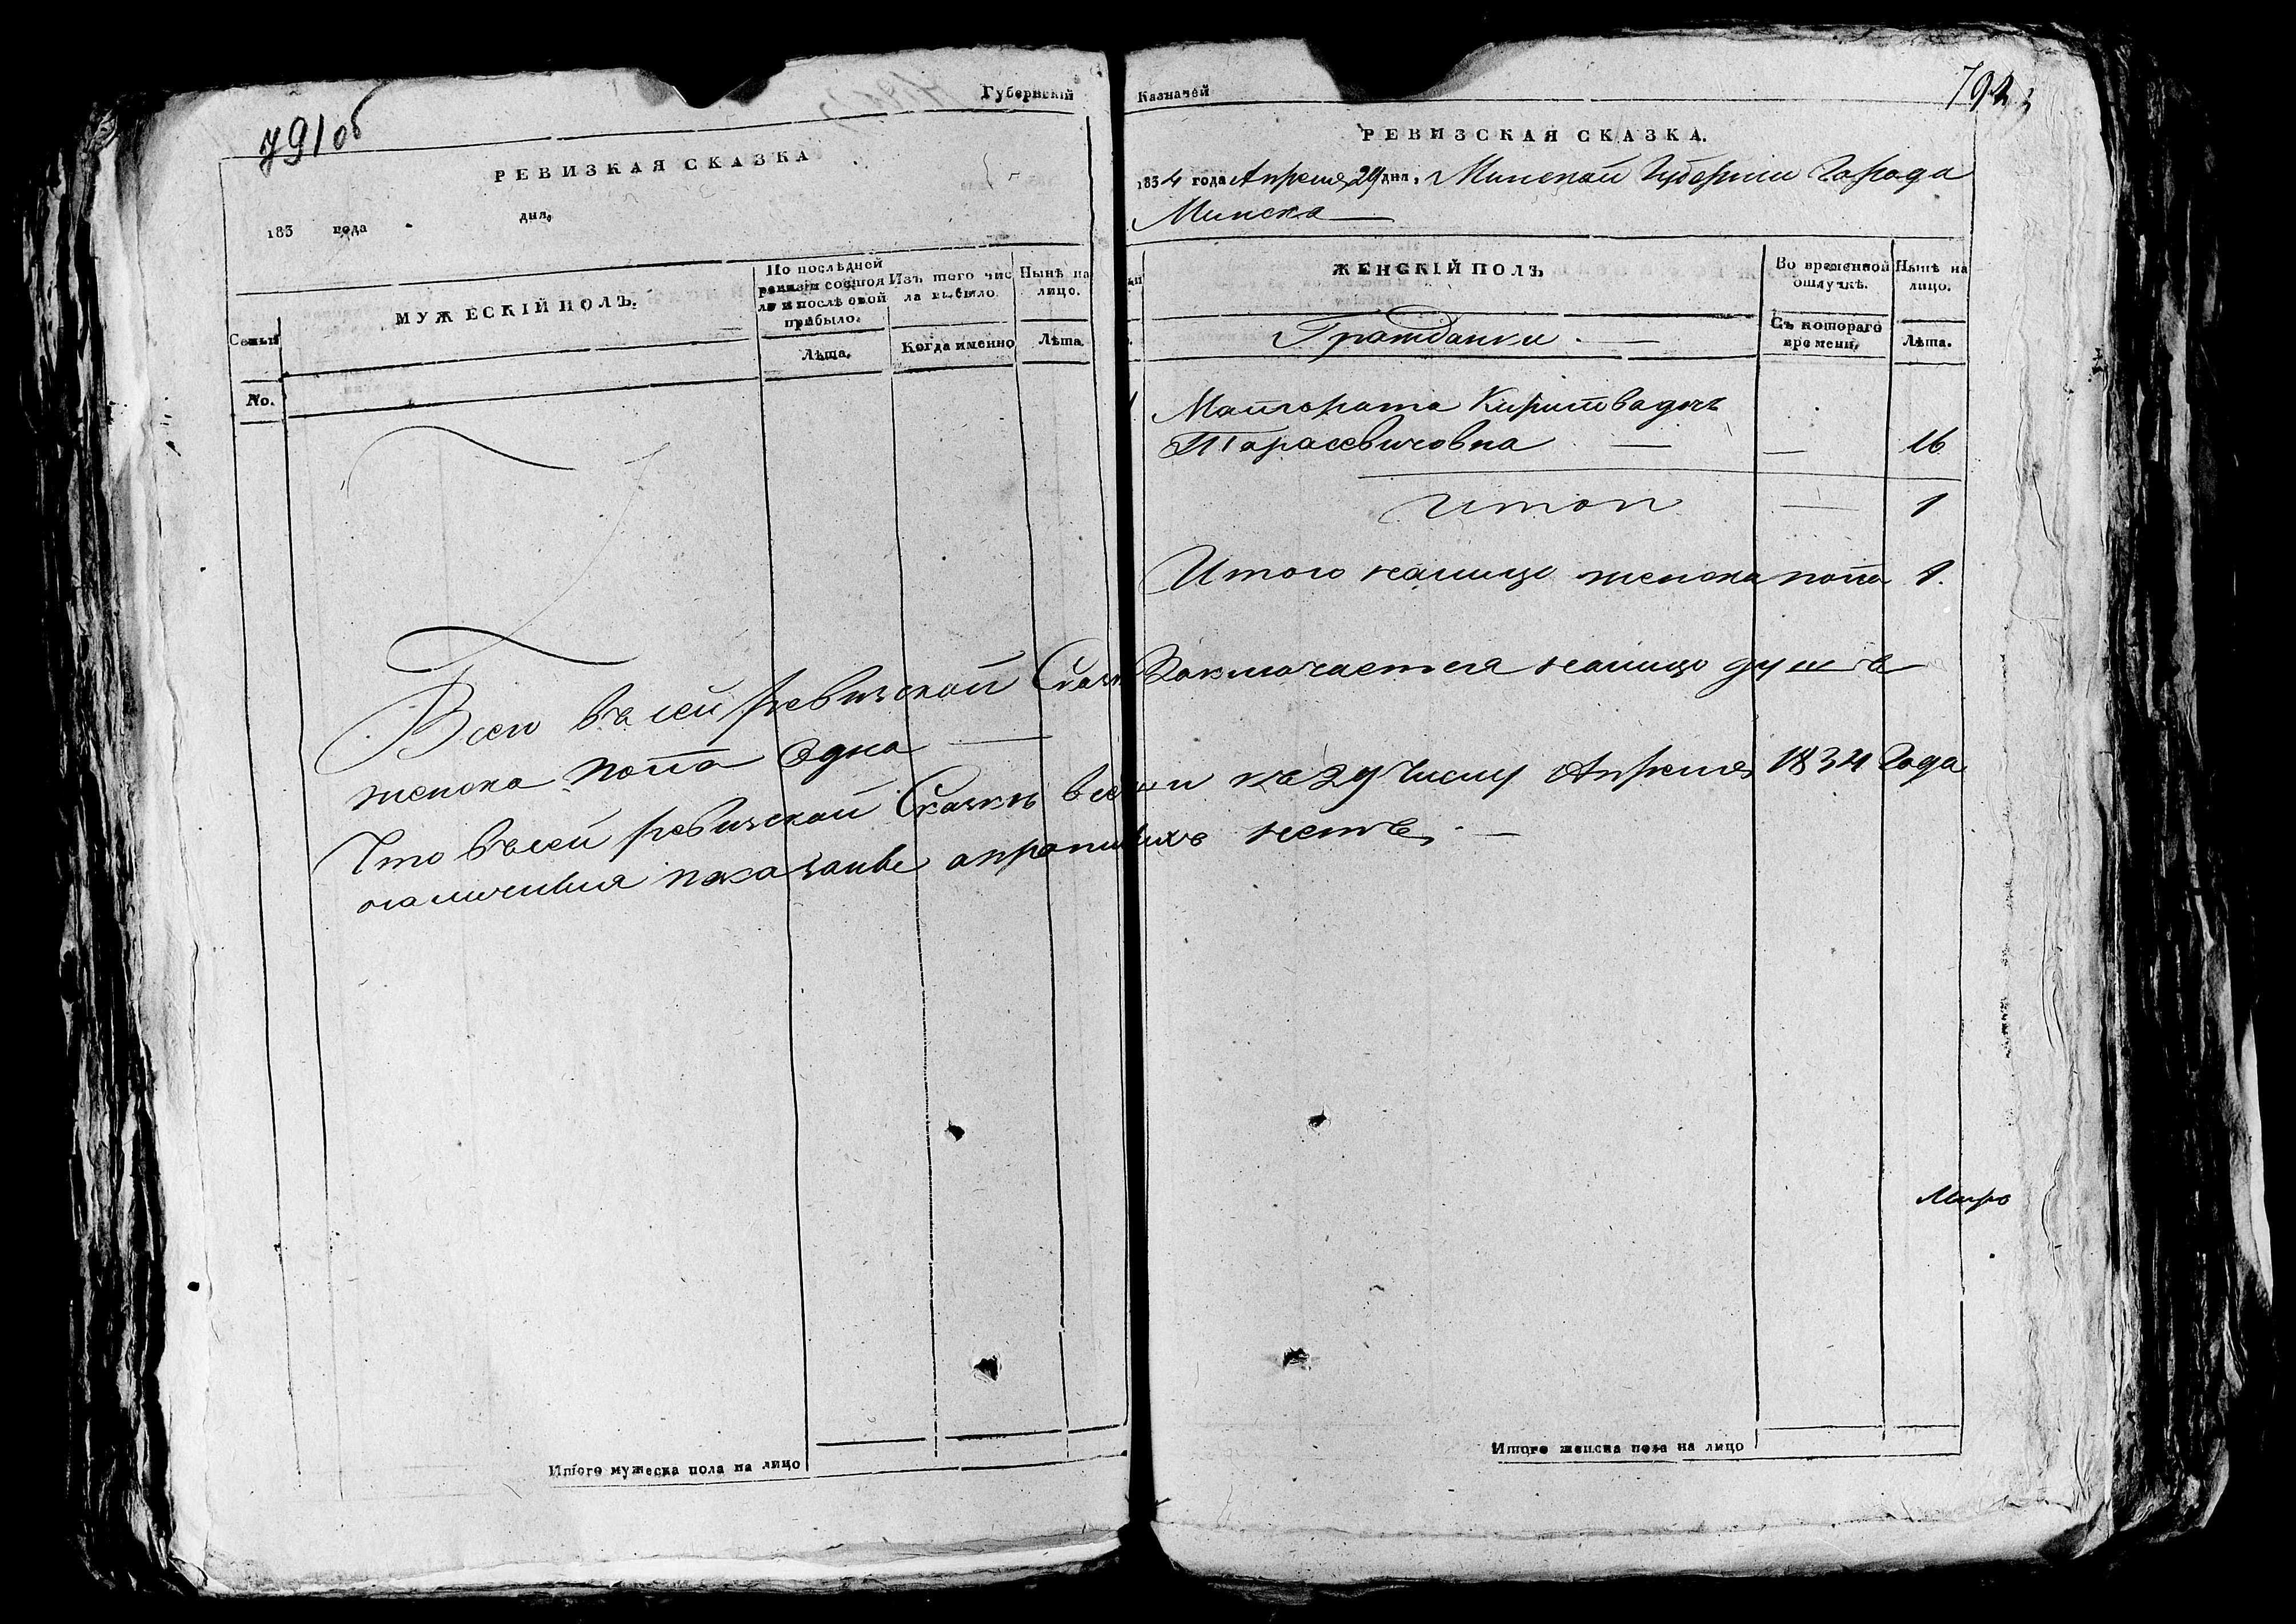 Губернскій
791об
РЕВИЗКАЯ СКАЗКА
183 года дня,
Семьи
МУЖЕСКІЙ ПОЛЪ.
По послѣдней
ревизіи состоя
ло и послѣ оной
прибыло.
Изъ того чис
ла выбыло.
Нынѣ на
лицо.
Лѣта.
Когда именно
Лѣта.
No.
Всего въ сей ревизской Сказк
женска пола Одна —
Что въ сей ревизской Сказкѣ все
наличныя показаны а прописныхъ нетъ. —
Итого мужеска пола на лицо
Казначей
792
РЕВИЗСКАЯ СКАЗКА.
1834 года Апреля 29 дня, Минской Губернiи Города
Минска —
ЖЕНСКІЙ ПОЛЪ
Во временной
отлучкѣ.
Нынѣ на
лицо.
Гражданки —
Съ котораго
времени.
Лѣта.
1
Малгората дочь
Тарасевичовна — — 16
Итог — 1
Итого налицо женска пола 1.
Заключается налицо душъ
къ 29 числу Апреля 1834 Года
Итого женска пола на лицо